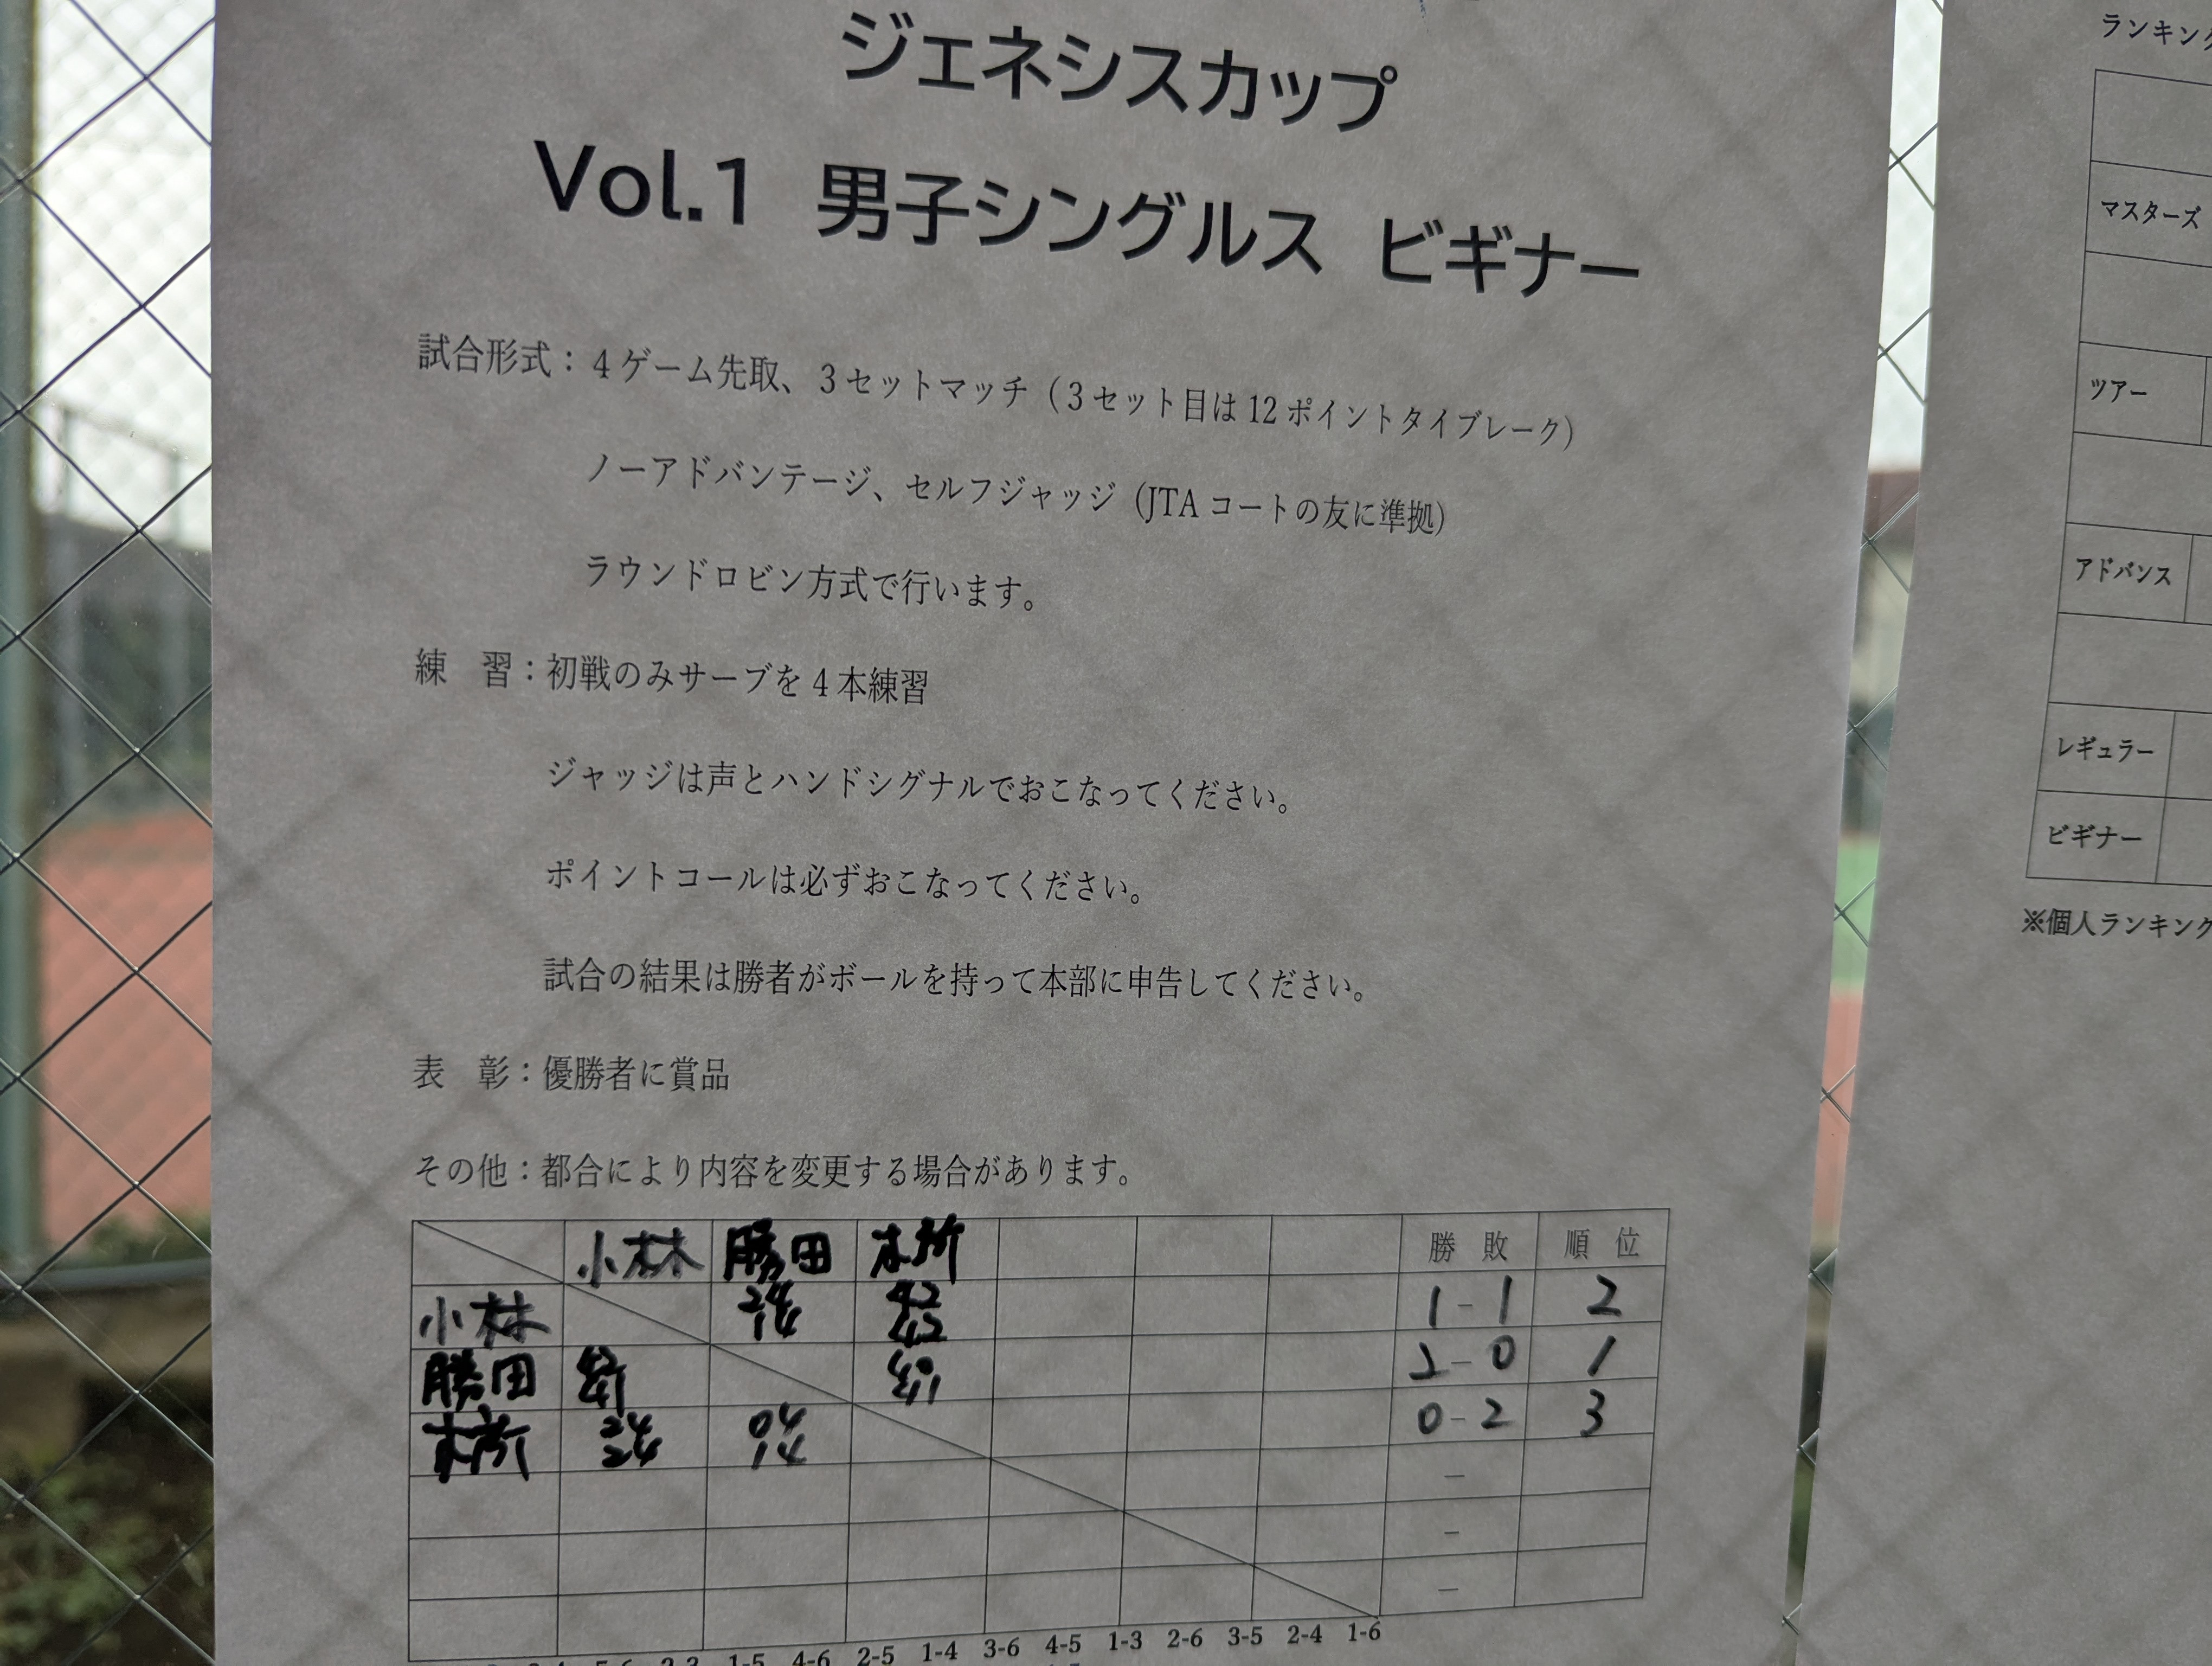 ジェネシスカップ
Vol.1 男子シングルス ビギナー
試合形式：4ゲーム先取、3セットマッチ（3セット目は12ポイントタイブレーク）
ノーアドバンテージ、セルフジャッジ（JTAコートの友に準拠）
ラウンドロビン方式で行います。
練　習：初戦のみサーブを4本練習
ジャッジは声とハンドシグナルでおこなってください。
ポイントコールは必ずおこなってください。
試合の結果は勝者がボールを持って本部に申告してください。
表　彰：優勝者に賞品
その他：都合により内容を変更する場合があります。
小林 勝田 本所 勝敗 順位
小林 24 14 42 42 1-1 2
勝田 2-0 1
本所 24 24 04 14 0-2 3
–
–
–
3-6 4-5 1-3 2-6 3-5 2-4 1-6
5-6 2-3 1-5 4-6 2-5 1-4
ランキング
マスターズ
ツアー
アドバンス
レギュラー
ビギナー
※個人ランキング